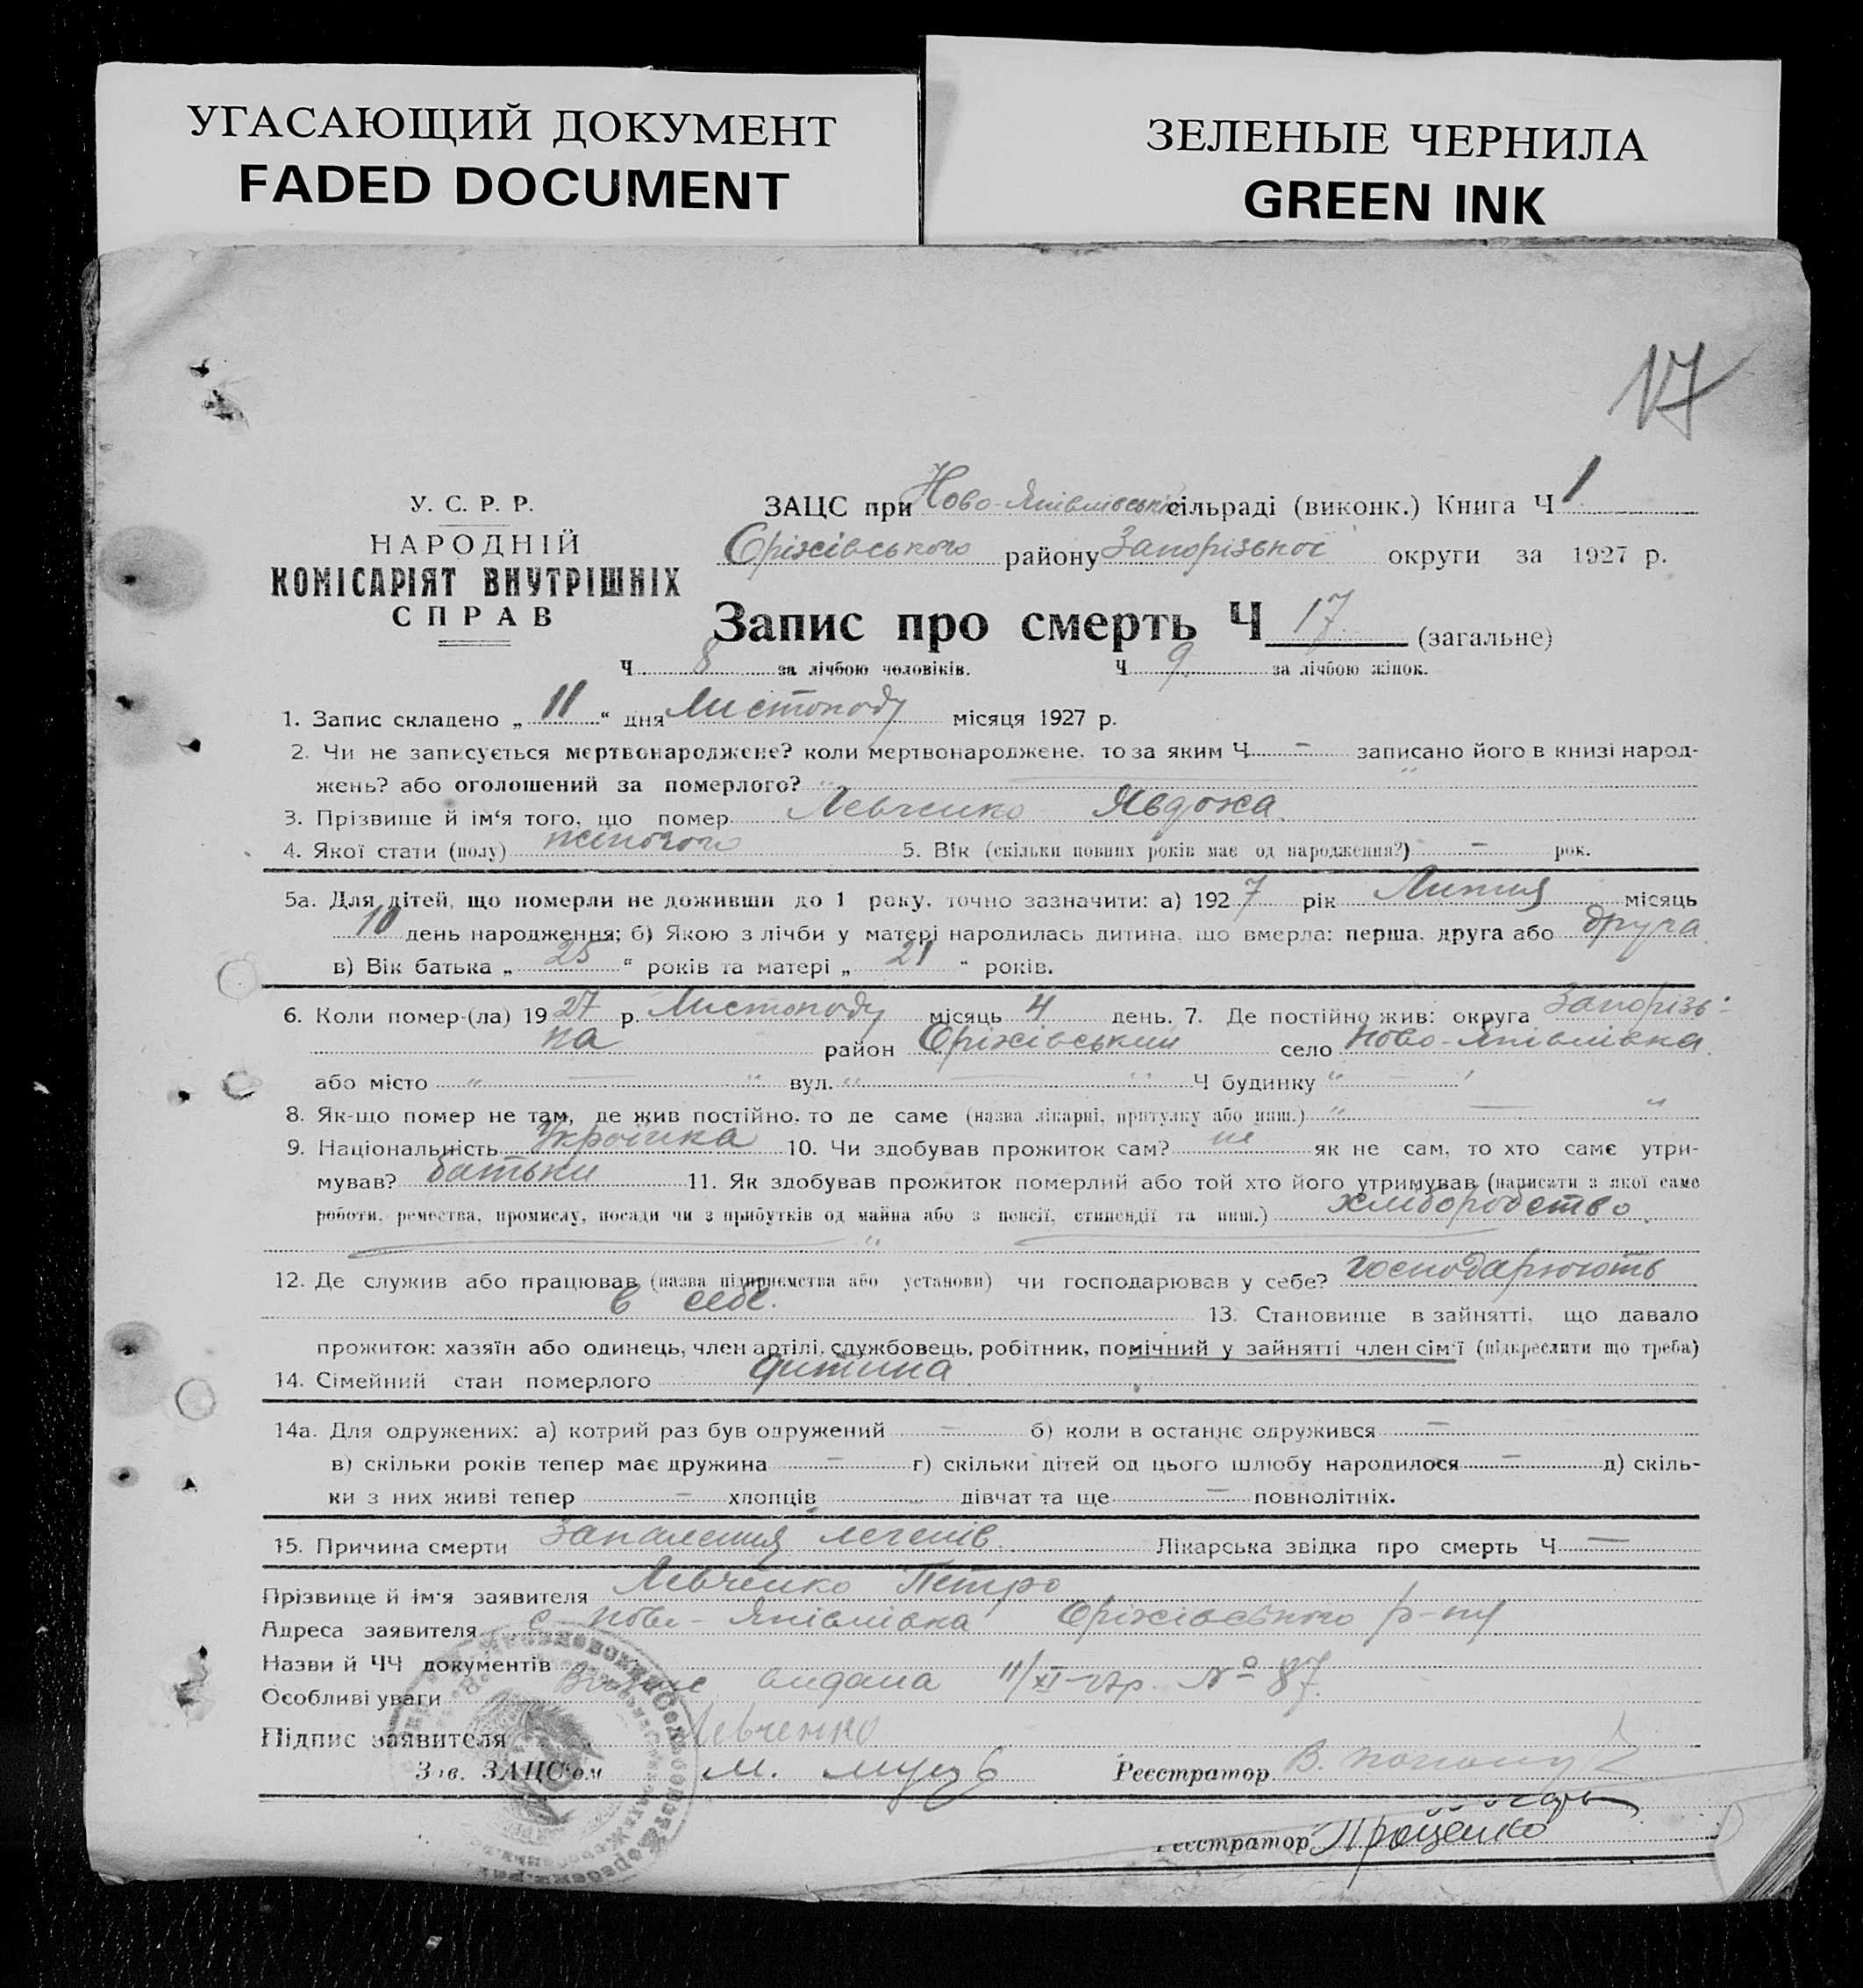 УГАСАЮЩИЙ ДОКУМЕНТ
FADED DOCUMENT
ЗЕЛЕНЫЕ ЧЕРНИЛА
GREEN INK
17
У. С. Р. Р.
НАРОДНІЙ
КОМІСАРІЯТ ВНУТРІШНІХ
СПРАВ
ЗАЦС при Ново-Янівлівській сільраді (виконк.) Книга Ч 1
Оріхівського району Запорізької округи за 1927 р.
Запис про смерть Ч 17 (загальне)
Ч 8 за лічбою чоловіків. Ч 9 за лічбою жінок.
1. Запис складено „ 11 “ дня Листопаду місяця 1927 р.
2. Чи не записується мертвонароджене? коли мертвонароджене, то за яким Ч — записано його в книзі народ-
жень? або оголошений за померлого? „ — „
3. Прізвище й ім‘я того, що помер Левченко Явдоха
4. Якої стати (полу) жіночого 5. Вік (скільки повних років має од народження?) — рок.
5а. Для дітей, що померли не доживши до 1 року, точно зазначити: а) 1927 рік Липня місяць
10 день народження; б) Якою з лічби у матері народилась дитина, що вмерла: перша, друга або друга
в) Вік батька „ 25 “ років та матері „ 21 “ років.
6. Коли помер-(ла) 1927 р. Листопаду місяць 4 день. 7. Де постійно жив: округа Запорізь-
ка район Оріхівський село Ново-Янівлівка
або місто „ — „ вул. „ — „ Ч будинку „ — „
8. Як-що помер не там, де жив постійно, то де саме (назва лікарні, притулку або инш.) „ — „
9. Національність Українка 10. Чи здобував прожиток сам? не як не сам, то хто саме утри-
мував? батьки 11. Як здобував прожиток померлий або той хто його утримував (написати з якої саме
роботи, ремества, промислу, посади чи з прибутків од майна або з пенсії, стипендії та инш.) хліборобство
— „ —
12. Де служив або працював (назва підприємства або установи) чи господарював у себе? господарюють
в себе. 13. Становище в зайнятті, що давало
прожиток: хазяїн або одинець, член артілі, службовець, робітник, помічний у зайнятті член сім‘ї (підкреслити що треба)
14. Сімейний стан померлого дитина
14а. Для одружених: а) котрий раз був одружений — б) коли в останнє одружився —
в) скільки років тепер має дружина — г) скільки дітей од цього шлюбу народилося — д) скіль-
ки з них живі тепер — хлопців — дівчат та ще — повнолітніх.
15. Причина смерти Запалення легенів. Лікарська звідка про смерть Ч —
Прізвище й ім‘я заявителя Левченко Петро
Адреса заявителя с. Ново-Янівлівка Оріхівського р-ну
Назви й ЧЧ документів
Особливі уваги видана 11/XI-27р. № 87.
Підпис заявителя Левченко
Зав. ЗАЦС‘ом М. Реєстратор В.
Реєстратор Проценко